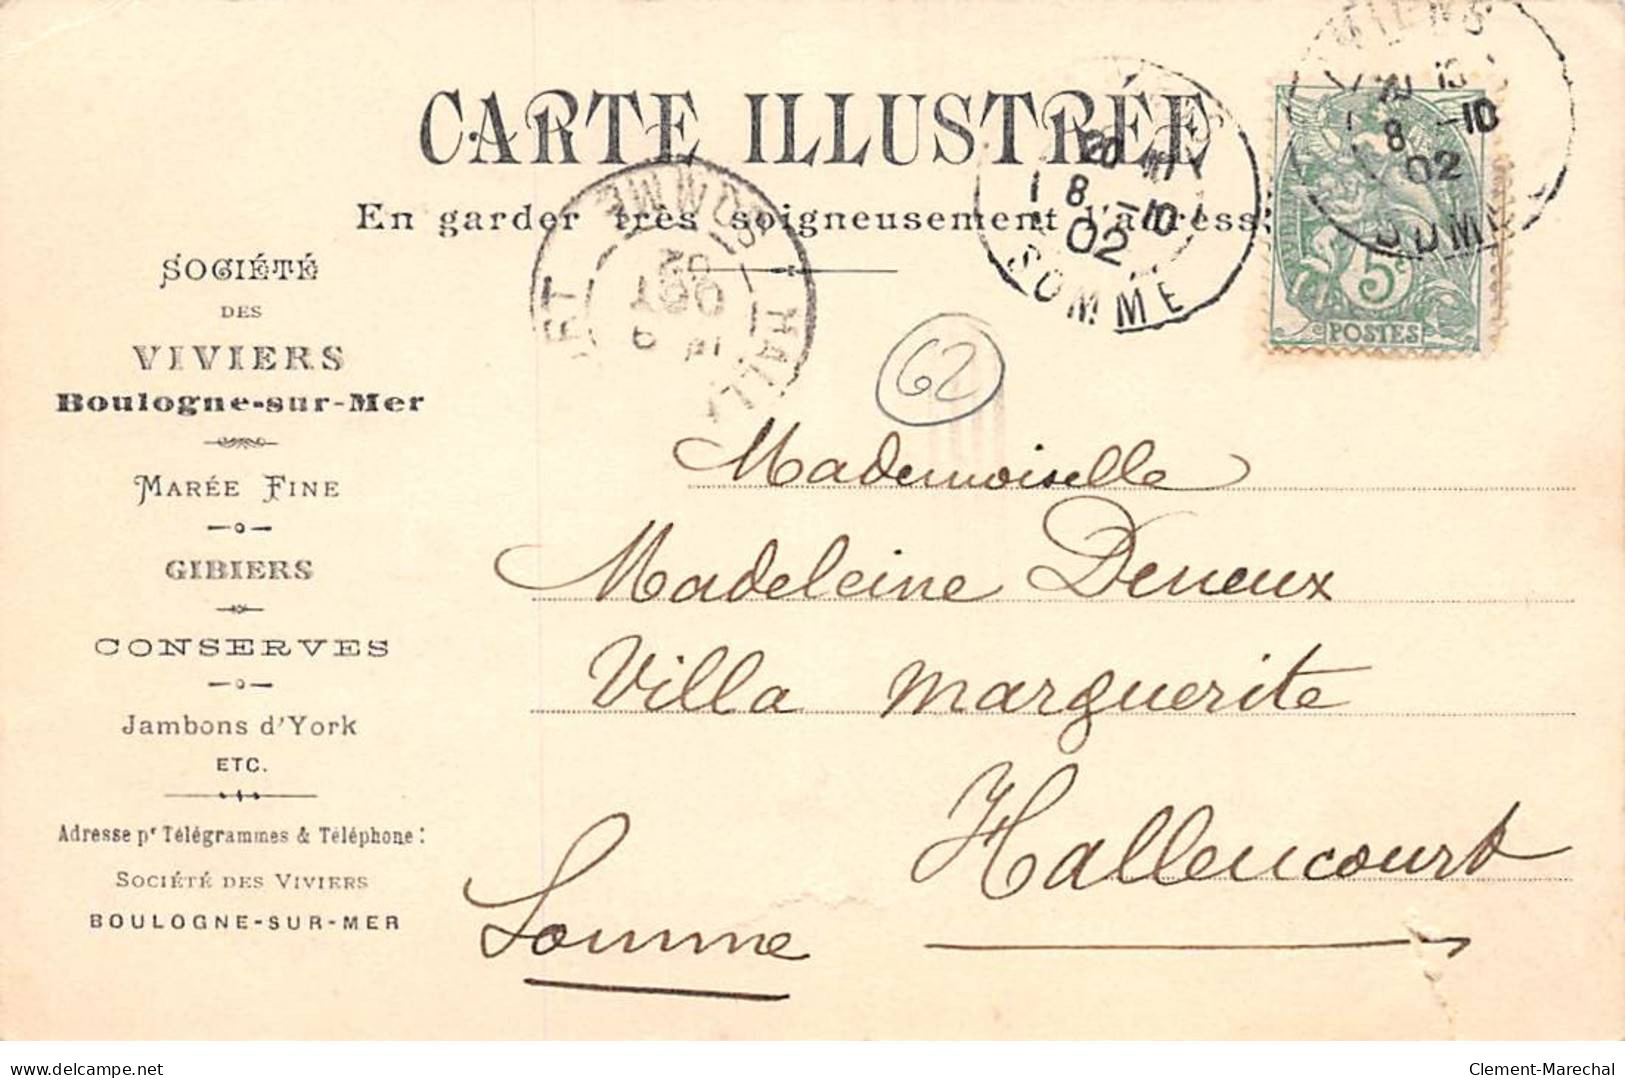 CARTE ILLUSTRÉE
En garder très soigneusement l'adresse
SOCIÉTÉ
DES
VIVIERS
Boulogne-sur-Mer
MARÉE FINE
GIBIERS
CONSERVES
Jambons d'York
ETC.
Adresse pr Télégrammes & Téléphone :
SOCIÉTÉ DES VIVIERS
BOULOGNE-SUR-MER
SOMME
8 -10
02
SOMME
8 -10
02
SOMME
5c
POSTES
62
Mademoiselle
Madeleine Deneux
Villa Marguerite
Hallencourt
Somme
delcampe.net
Clement-Marechal